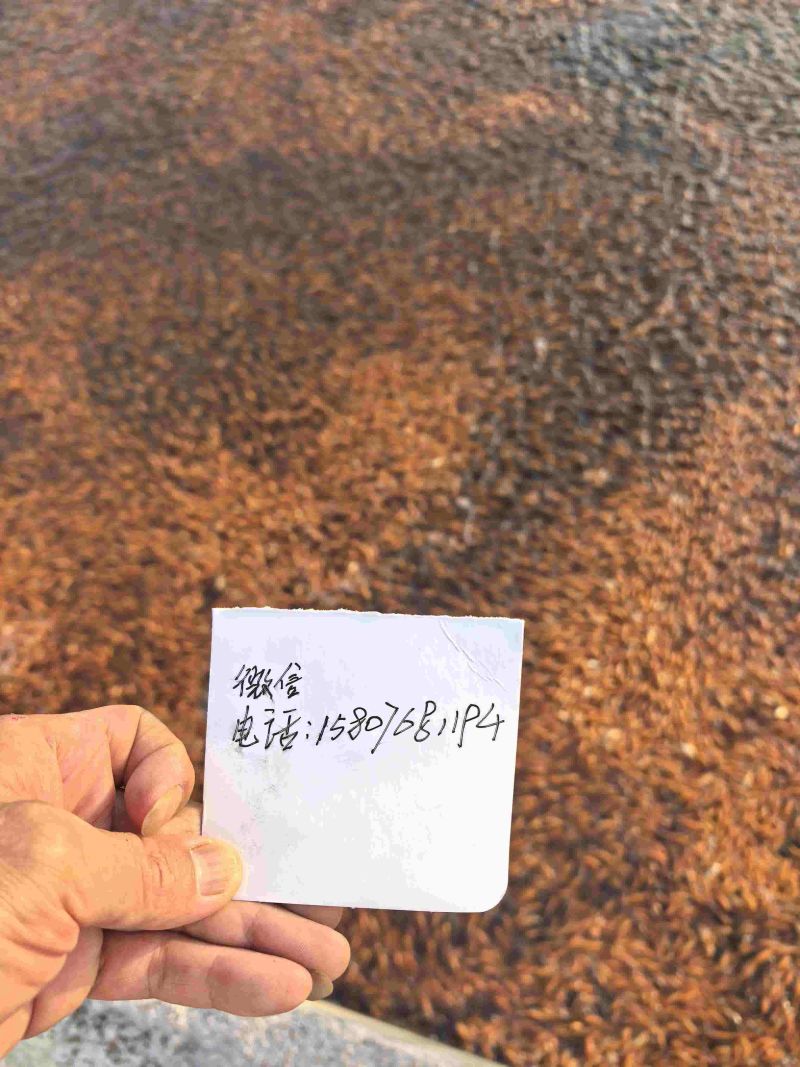 微信
电话:15807681194